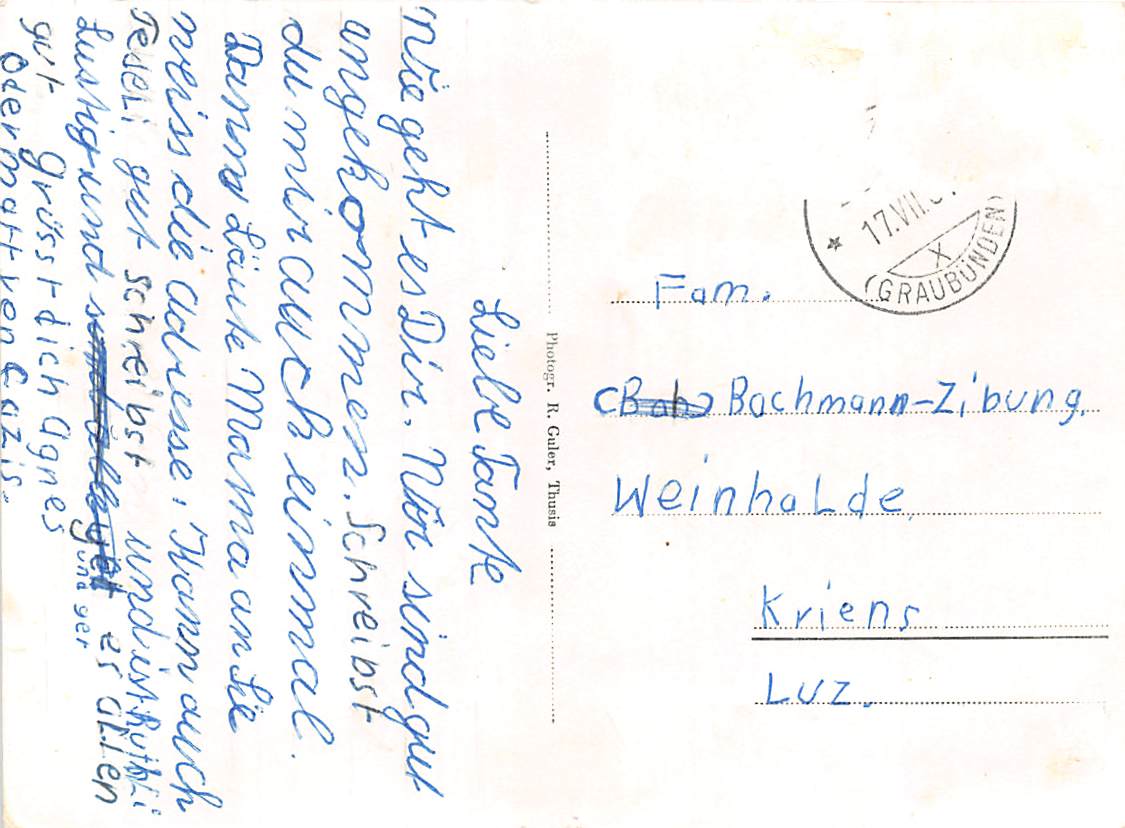 Liebe Tante
Wie geht es Dir. Wir sind gut
angekommen. Schreibst
du mir auch einmal.
Dann Läute Mama an Sie
weis die adresse. Kann auch
gut schreibst und ist Ruthli
Lustig und es allen
und
gut grüsst dich Agnes
Odermatt von Cazis.
Photogr. R. Guler, Thusis
17.VIII.
X
(GRAUBÜNDEN)
Fam.
Bachmann-Zibung.
Weinhalde
Kriens
Luz.